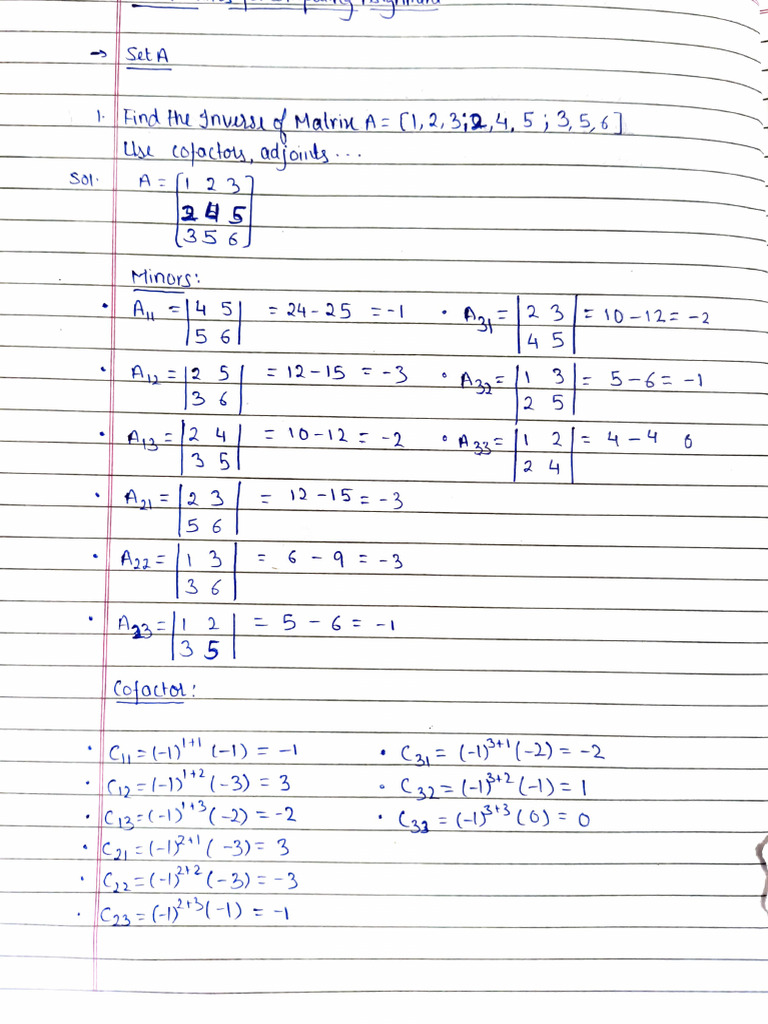 → Set A
1. Find the Inverse of Matrix A = [1, 2, 3; 2, 4, 5 ; 3, 5, 6]
Use cofactors, adjoints . . .
Sol. A = [1 2 3
2 4 5
3 5 6]
Minors:
• A₁₁ = |4 5| = 24 - 25 = -1
|5 6|
• A₁₂ = |2 5| = 12 - 15 = -3
|3 6|
• A₁₃ = |2 4| = 10 - 12 = -2
|3 5|
• A₂₁ = |2 3| = 12 - 15 = -3
|5 6|
• A₂₂ = |1 3| = 6 - 9 = -3
|3 6|
• A₂₃ = |1 2| = 5 - 6 = -1
|3 5|
• A₃₁ = |2 3| = 10 - 12 = -2
|4 5|
• A₃₂ = |1 3| = 5 - 6 = -1
|2 5|
• A₃₃ = |1 2| = 4 - 4 0
|2 4|
Cofactor:
• C₁₁ = (-1)¹⁺¹ (-1) = -1
• C₁₂ = (-1)¹⁺² (-3) = 3
• C₁₃ = (-1)¹⁺³ (-2) = -2
• C₂₁ = (-1)²⁺¹ (-3) = 3
• C₂₂ = (-1)²⁺² (-3) = -3
• C₂₃ = (-1)²⁺³ (-1) = -1
• C₃₁ = (-1)³⁺¹ (-2) = -2
• C₃₂ = (-1)³⁺² (-1) = 1
• C₃₃ = (-1)³⁺³ (0) = 0